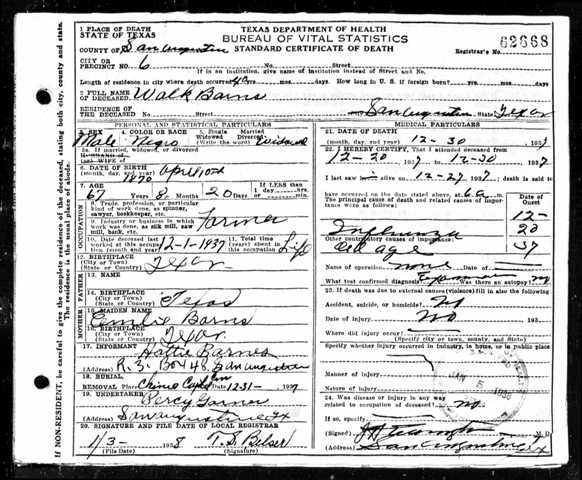 1 PLACE OF DEATH
STATE OF TEXAS
TEXAS DEPARTMENT OF HEALTH
BUREAU OF VITAL STATISTICS
STANDARD CERTIFICATE OF DEATH
COUNTY OF San Augustine
Registrar's No. 62668
CITY OR
PRECINCT NO. 6 No. Street
If in an institution, give name of institution instead of Street and No.
Length of residence in city where death occurred yrs. mos. days. How long in U. S. if foreign born? yrs. mos. days.
2 FULL NAME
OF DECEASED Walk Barns
RESIDENCE OF
THE DECEASED No. Street San Augustine State Texas
PERSONAL AND STATISTICAL PARTICULARS
MEDICAL PARTICULARS
3. SEX Male
4. COLOR OR RACE Negro
5. Single Married
Widowed Divorced
(Write the word) Widowed
21. DATE OF DEATH
(month, day, and year) 12-30 1937
5a. If married, widowed, or divorced
HUSBAND of
or WIFE of
22. I HEREBY CERTIFY, That I attended deceased from
12-20 1937 to 12-30 1937
6. DATE OF BIRTH
(month, day, and year) 1870
I last saw alive on 12-27 1937 death is said to
have occurred on the date stated above, at 6 a m.
7. AGE
67 Years 8 Months 20 Days
If LESS than
1 day hrs.
or min.
The principal cause of death and related causes of importance were as follows:
Date of Onset
8. Trade, profession, or particular kind of work done, as spinner, sawyer, bookkeeper, etc. Farmer
9. Industry or business in which work was done, as silk mill, saw mill, bank, etc.
12-
20
37
Influenza
Other contributory causes of importance:
Old age
10. Date deceased last worked at this occupation 12-1-1937
11. Total time (years) spent in occupation Life
12. BIRTHPLACE
(City or Town)
(State or Country) Texas
Name of operation none Date of
What test confirmed diagnosis Was there an autopsy? no
FATHER
13. NAME
14. BIRTHPLACE
(City or Town)
(State or Country) Texas
23. If death was due to external causes (violence) fill in also the following
Accident, suicide, or homicide? No
Date of injury No 193
MOTHER
15. MAIDEN NAME
Emilie Barns
16. BIRTHPLACE
(City or Town)
(State or Country) Texar
Where did injury occur?
(Specify city or town, county, and State)
Specify whether injury occurred in industry, in home, or in public place
17. INFORMANT Hattie Barnes
R. 3. Box 48. San Augustine
Manner of injury
18. BURIAL
REMOVAL Place Date 12-31- 1937
Nature of injury
19. UNDERTAKER Percy Garner
(Address) San augustine TX
24. Was disease or injury in any way related to occupation of deceased? no
20. SIGNATURE AND FILE DATE OF LOCAL REGISTRAR
1/3- 1938 T. S. Belser
(File Date) (Signature)
(Signed)
(Address) San Augustine TX
JAN 5 1938
IF NON-RESIDENT, be careful to give the complete residence of the deceased, stating both city, county and state.
The residence is the usual place of abode.